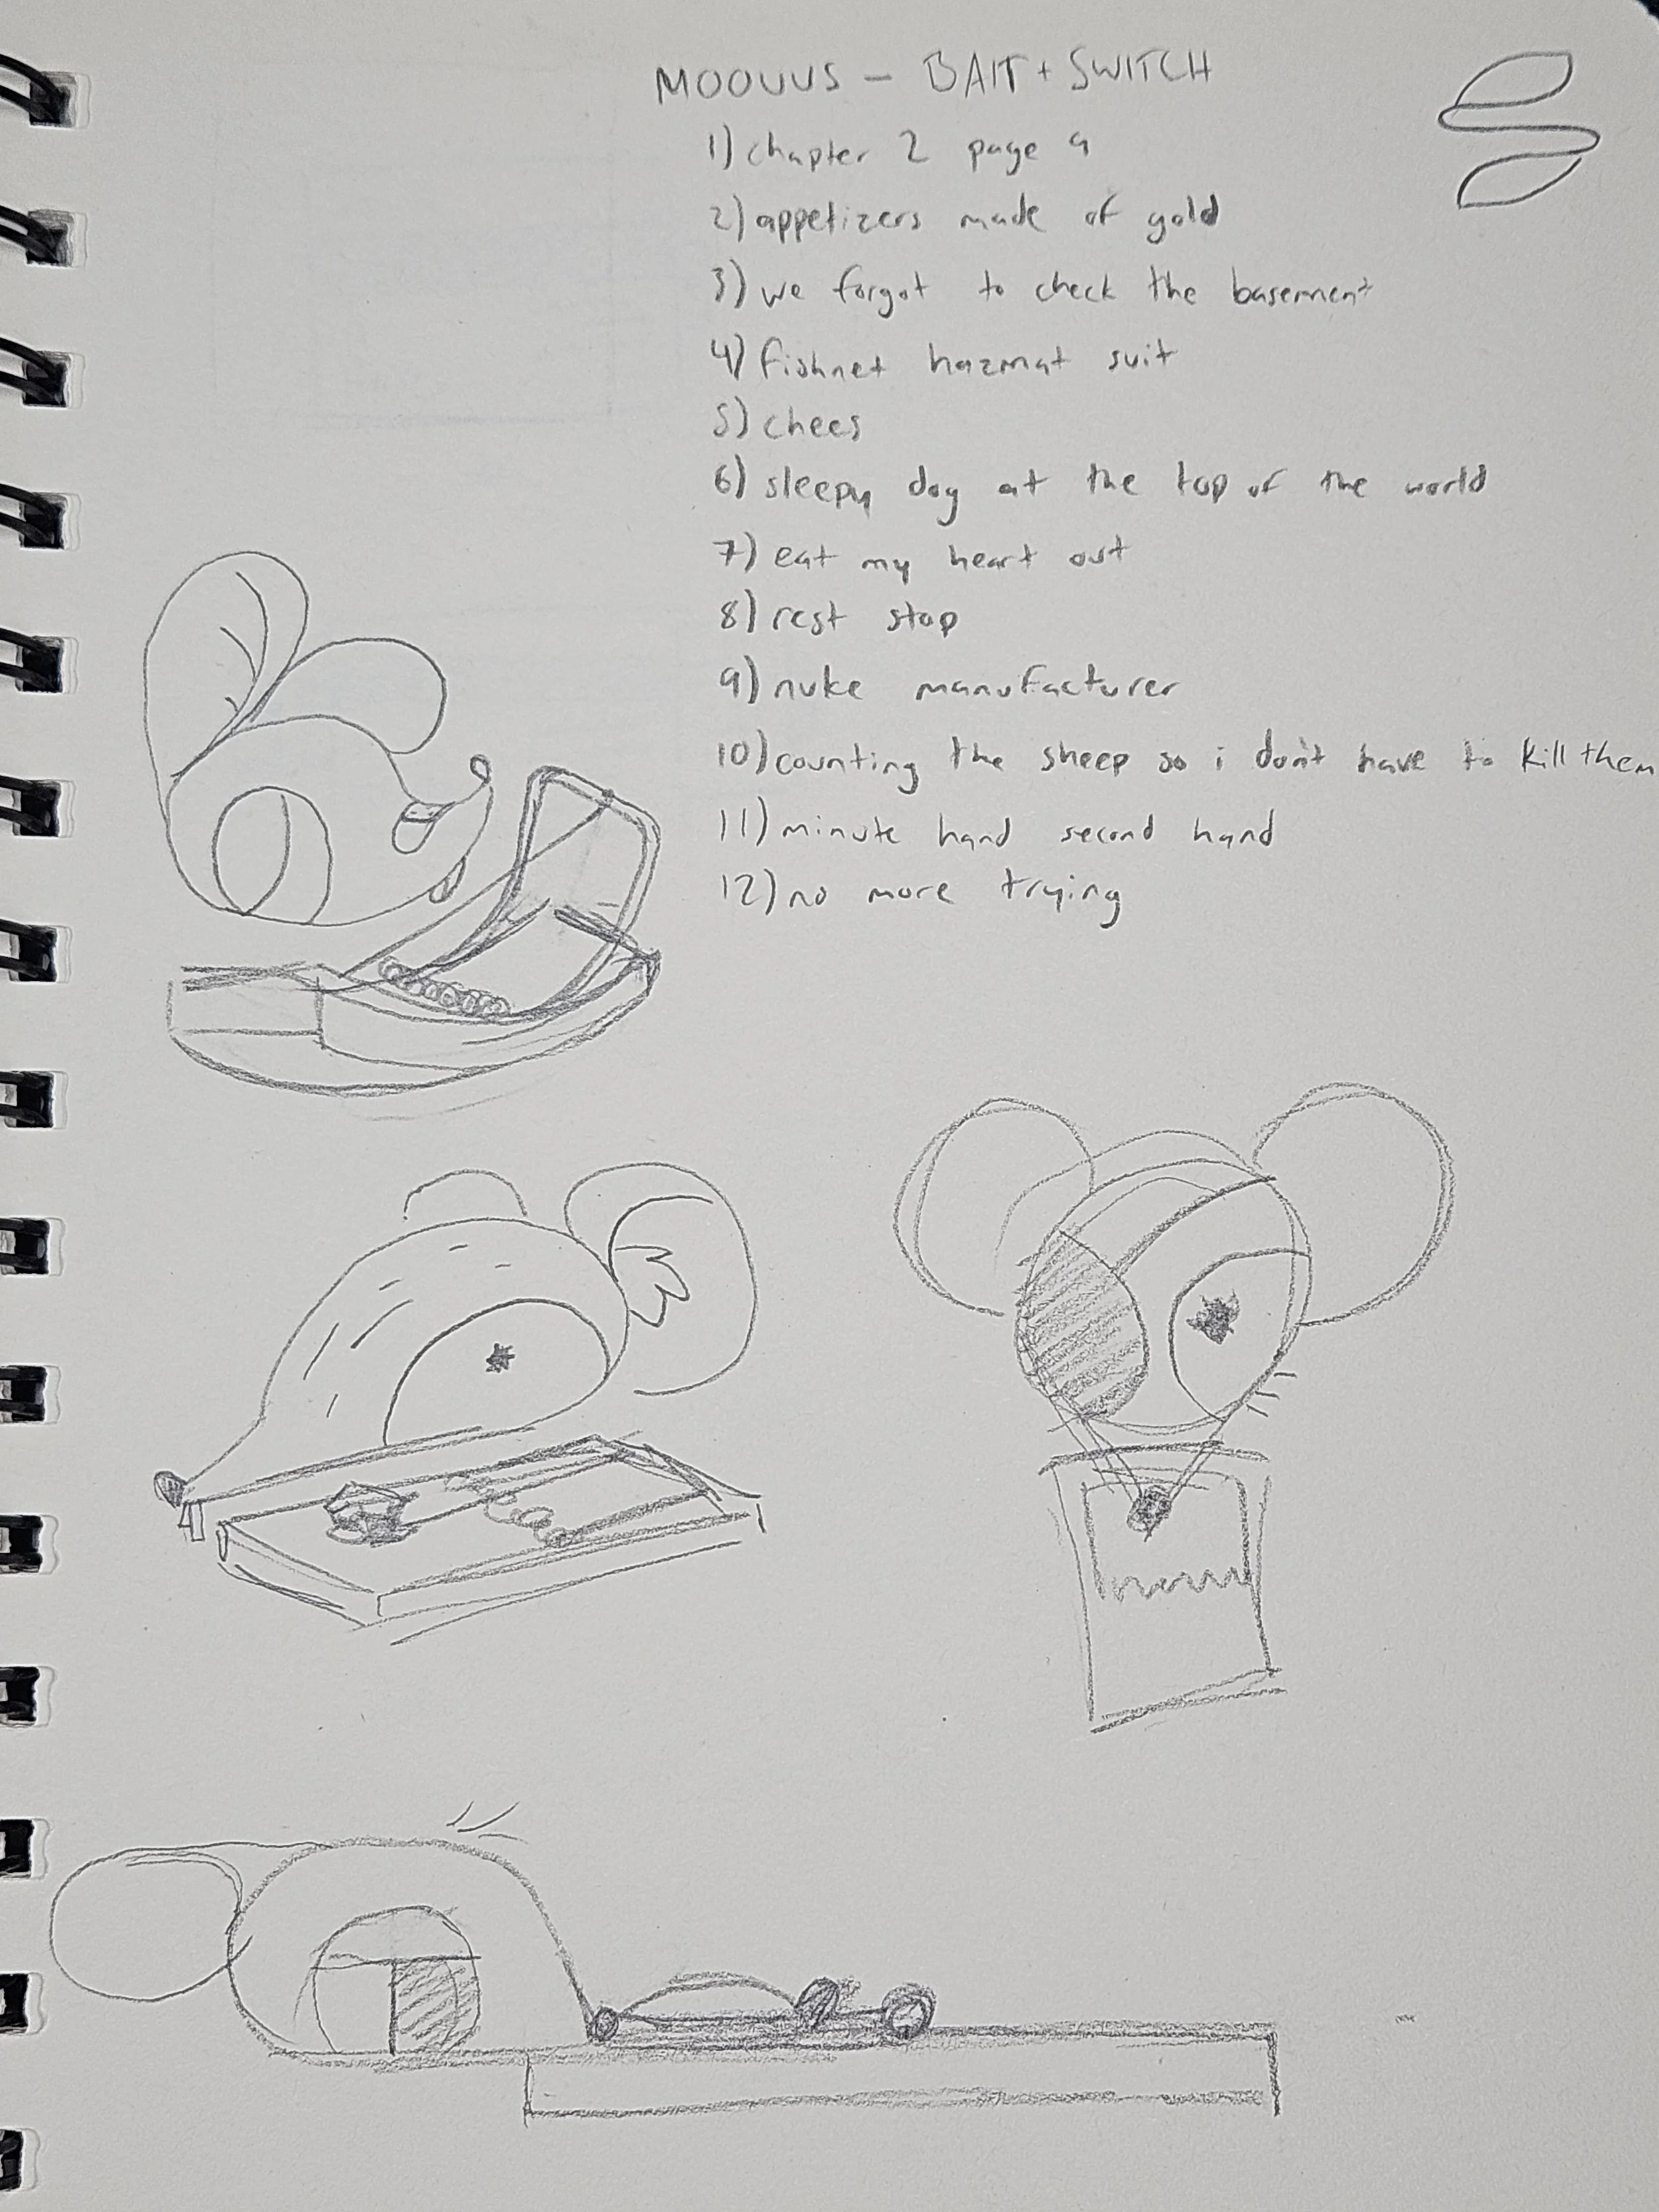 MOOUUS – BAIT + SWITCH
1) chapter 2 page 9
2) appetizers made of gold
3) we forgot to check the basement
4) fishnet hazmat suit
5) chees
6) sleepy dog at the top of the world
7) eat my heart out
8) rest stop
9) nuke manufacturer
10) counting the sheep so i don't have to kill them
11) minute hand second hand
12) no more trying